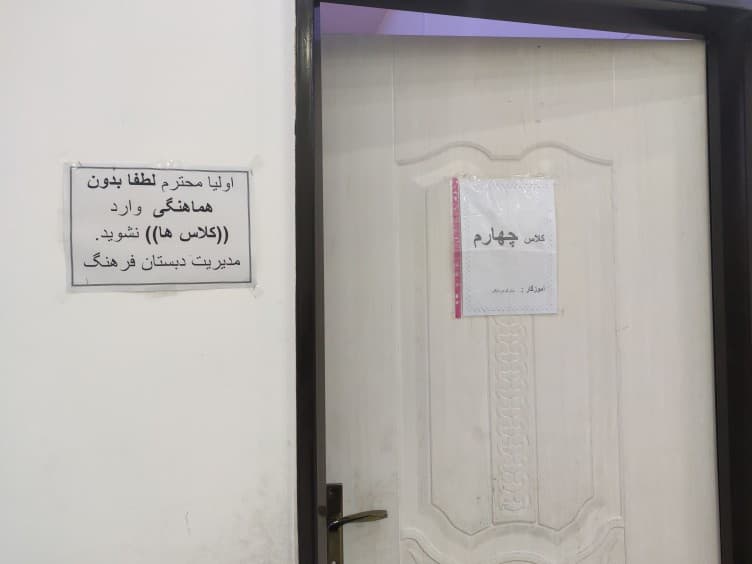 اولیا محترم لطفا بدون
هماهنگی وارد
((کلاس ها)) نشوید.
مدیریت دبستان فرهنگ
کلاس چهارم
آموزگار :